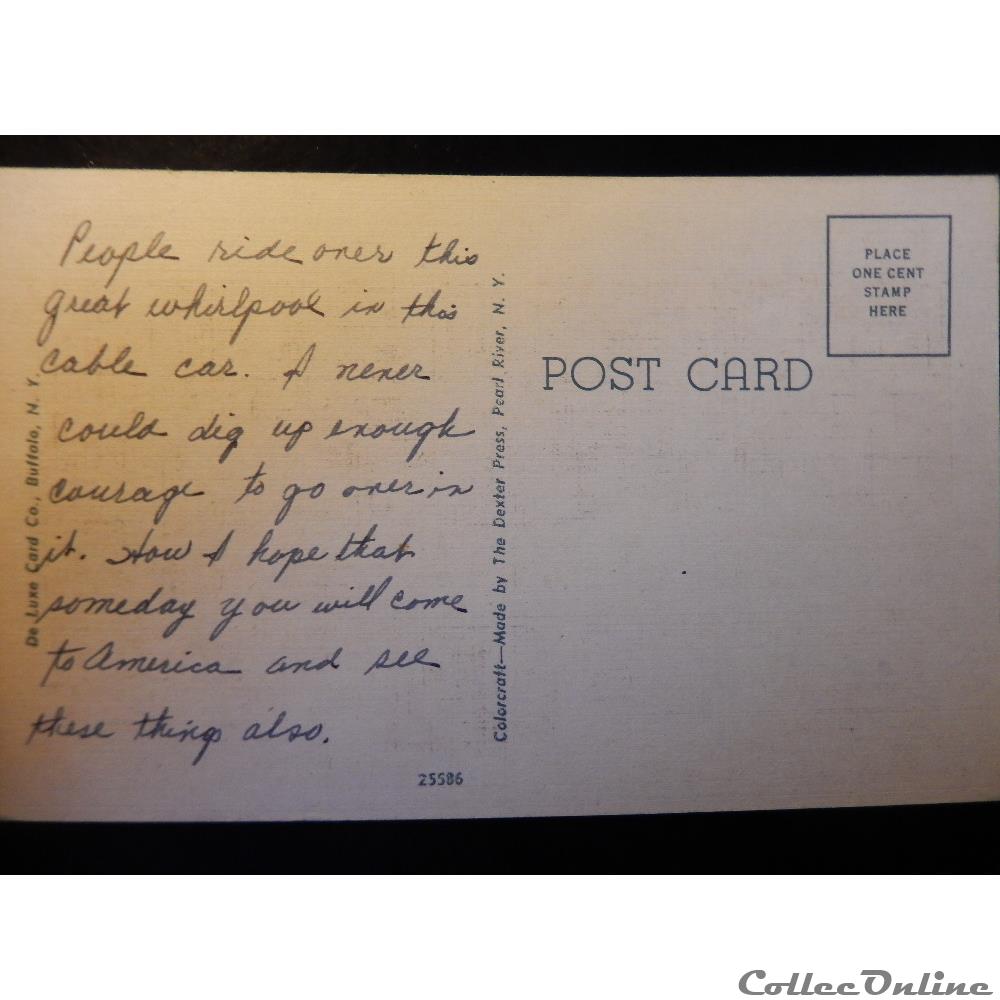 People ride over this
great whirlpool in this
cable car. I never
could dig up enough
courage to go over in
it. How I hope that
someday you will come
to America and see
these things also.
De Luxe Card Co., Buffalo, N. Y.
Colorcraft—Made by The Dexter Press, Pearl River, N. Y.
25586
POST CARD
PLACE
ONE CENT
STAMP
HERE
CollecOnline